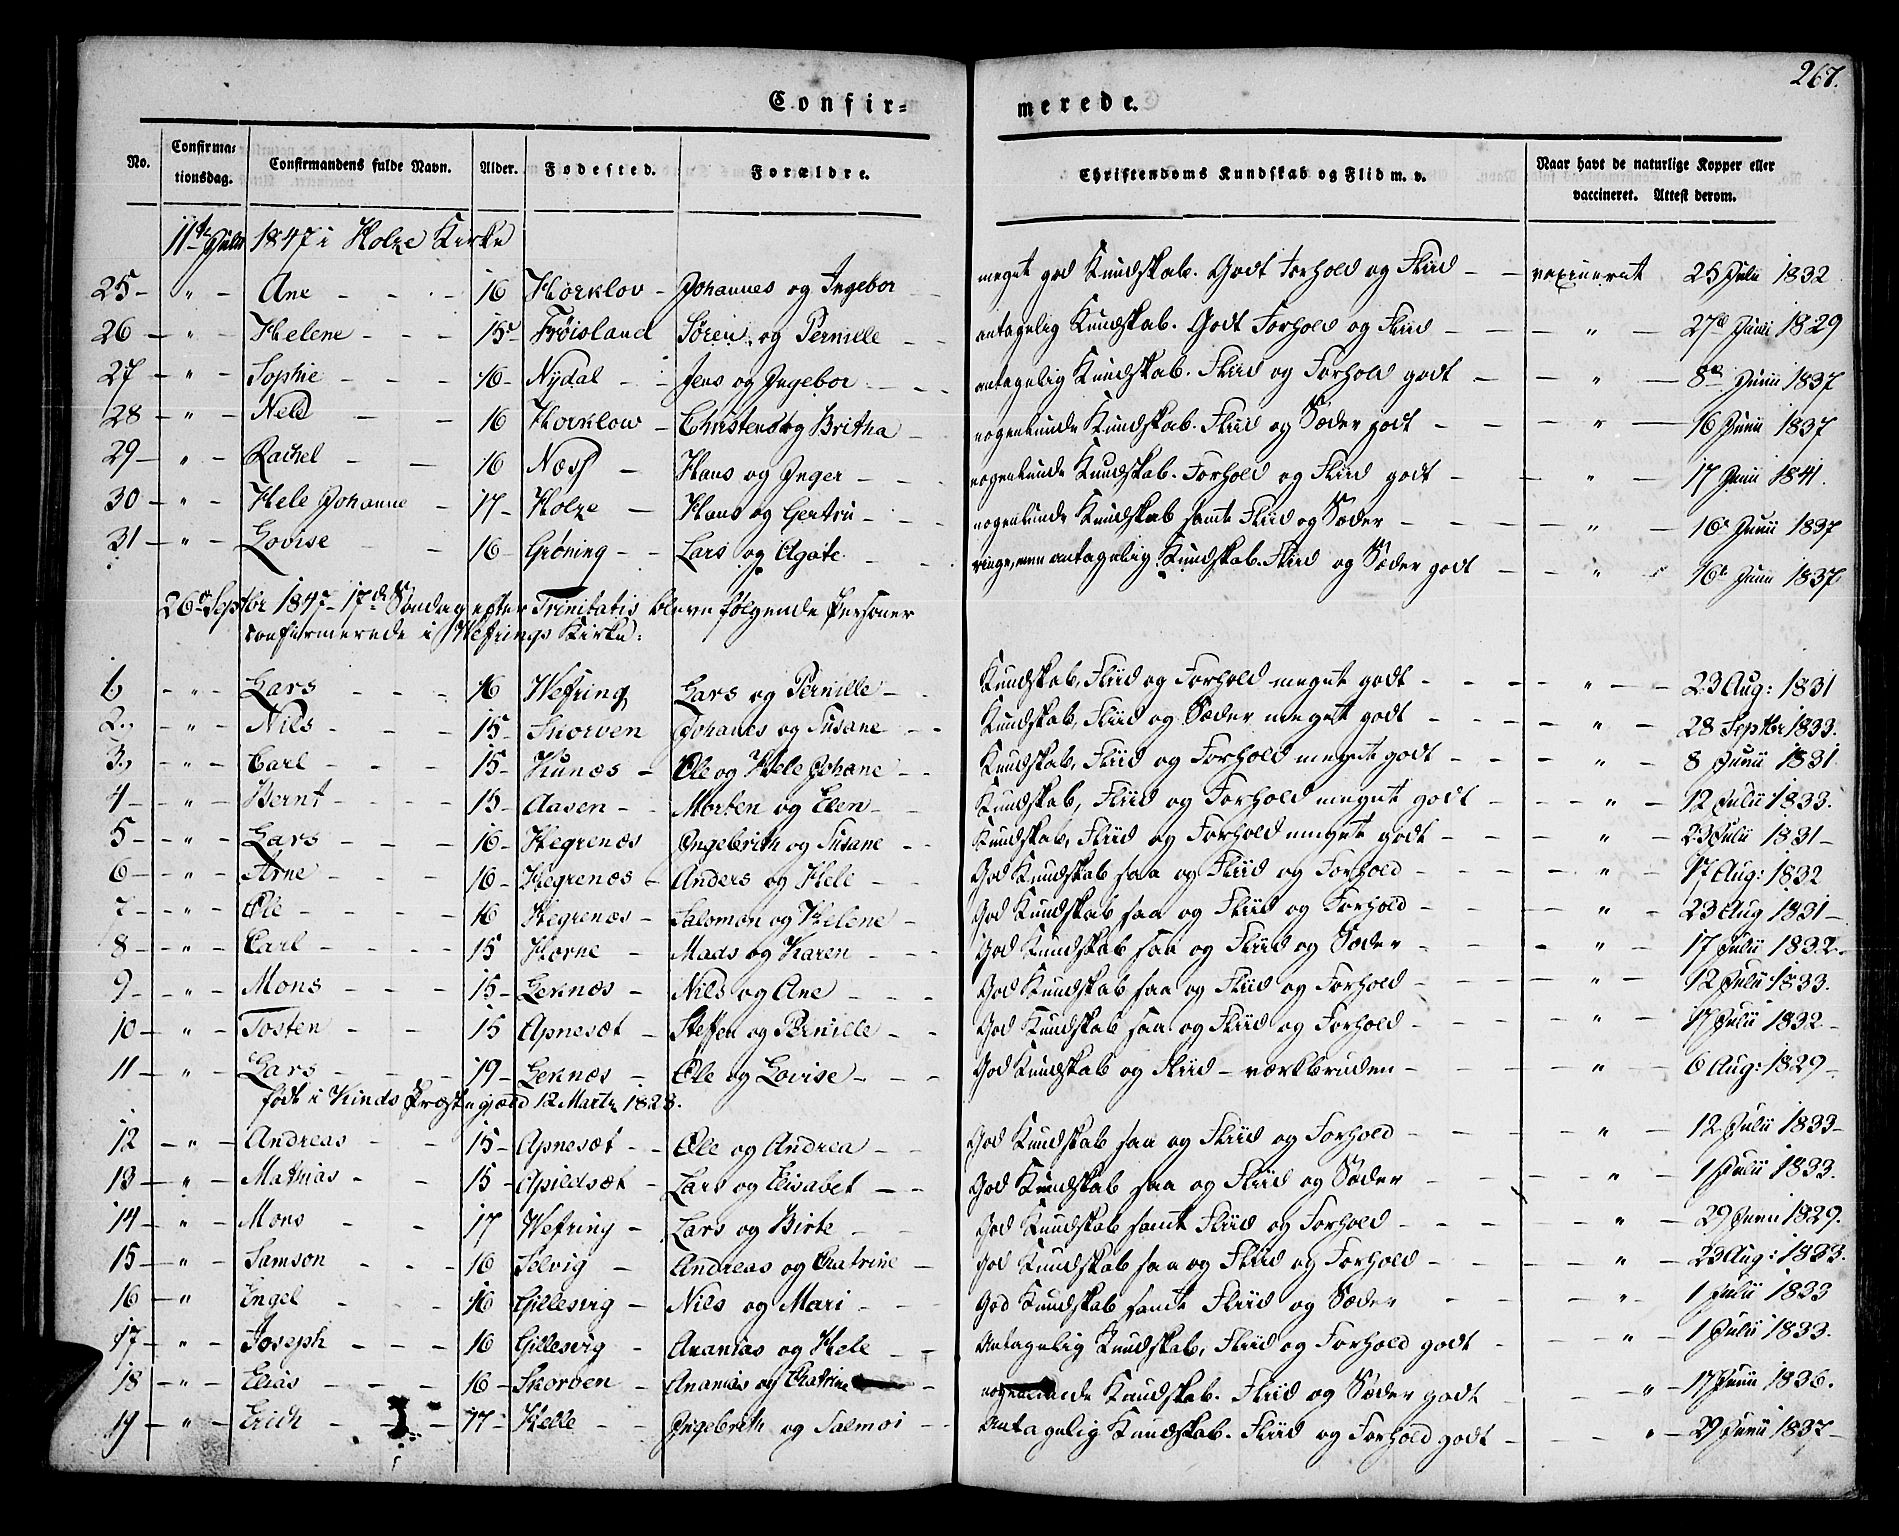 267.
Confir= merede.
No. Confirma- tionsdag. Confirmandens fulde Navn. Alder. Fødested. Forældre. Christendoms Kundskab og Flid m. v. Naar havt de naturlige Kopper eller vaccineret. Attest derom.
11te Julii 1847 i Holze Kirke
25 - " - Ane - - - 16 Horklov - Johannes og Ingebor - - meget god Kundskab. Godt Forhold og Fliid - - vaxineret 25 Julii 1832
26 - " - Helene - - - 15 - Frøisland Søren og Pernille - - antagelig Kundskab. Godt Forhold og Fliid - - - " - 27de Junii 1829
27 - " - Sophie - - - 16 - Nydal - - Jens og Ingebor - - - antagelig Kundskab. Fliid og Forhold godt - - " - 8de Junii 1837
28 - " - Nele - - 16 Horklow - Christen og Britha - nogenlunde Kundskab. Fliid og Sæder godt - - - " - 16 Junii 1837
29 - " - Rachel - - 16 Næss - Hans og Inger - - - nogenlunde Kundskab. Forhold og Fliid godt - - " - 17 Junii 1841.
30 - " - Hele Johanne - 17 - Holze - Hans og Gertru - - - nogenlunde Kundskab samt Fliid og Sæder - - - - " - 16 Junii 1837
31 - " - Lovise - - 16 - Grøning - - Lars og Agate - - ringe, men antagelig Kundskab. Fliid og Sæder godt - - " 16 Junii 1837.
26de Septbr 1847 - 17de Søndag efter Trinitatis bleve følgende Personer
confirmerede i Wefrings Kirke:
1 - " - Lars - - - 16 Wefring Lars og Pernille - - Kundskab, Fliid og Forhold meget godt - - - - " - - 23 Aug: 1831
2., - " - Nils - - - 15 - Skorven Johanes og Susane - - Kundskab, Fliid og Sæder meget godt - - - - " - 28 Septbr 1833.
3., - " - Carl - - - 15 - Kunæs - Ole og Hele Johane - - Kundskab, Fliid og Forhold meget godt - - - - " - 8 Junii 1831
4 - " - Bernt - - - - 15 - Aasen - - Morten og Elen - - Kundskab, Fliid og Forhold meget godt - - - " - 12 Julii 1833.
5 - " - Lars - - - 16 - Hegrenæs Ingebrith og Susane - - Kundskab, Fliid og Forhold meget godt - - - - " - 23 Julii 1831 -
6 - " - Arne - - - 16 - Hegrenæs - Anders og Hele - - God Kundskab saa og Fliid og Forhold - - - - " - 17 Aug: 1832
7 - " - Ole - - - - 16 Hegrenæs - Salomon og Helene - God Kundskab saa og Fliid og Forhold - - - - " - 23 Aug 1831 -
8 - " - Carl - - - - 15 Horne - Mads og Karen - - - God Kundskab saa og Fliid og Sæder - - - - " - 17 Julii 1832 -
9 - " - Mons - - - 15 - Leknæs - Nils og Ane - - - God Kundskab saa og Fliid og Forhold - - - - " - 12 Julii 1833.
10 - " - Tosten - - 15 Apnesæt - Steffen og Pernille - - God Kundskab saa og Fliid og Forhold - - - - " - 17 Julii 1832 -
11 - " - Lars - - - - 19 - Leknæs - Ole og Lovise - - - God Kundskab og Fliid - værkbruden - - - - " - 6 Aug: 1829 -
født i Kinds Præstegjæld 12 Martz 1828.
12 - " - Andreas - - 15 - Apnesæt - - Ole og Andrea - - God Kundskab saa og Fliid og Forhold - - - - " - 12 Julii 1833 -
13 - " - Mathias - - 15 - Apildsæt - Lars og Elisabet - - God Kundskab saa og Fliid og Sæder - - - - " - 1 Julii 1833.
14 - " - Mons - - 17 Wefring - Lars og Birte - - God Kundskab samt Fliid og Forhold - - - - " - 29 Junii 1829.
15 - " Samson - - - 16 Selvig - Andreas og Chatrine - God Kundskab saa og Fliid og Forhold - - - - " - 23 Aug: 1833.
16 - " Engel - - - 16 Gillesvig - Nils og Mari - - - God Kundskab samt Fliid og Sæder - - - - " - 1 Julii 1833
17 - " - Joseph - - - 16 Gillesvig - Ananias og Hele - - Antagelig Kundskab, Fliid og Forhold godt - - - " - 1 Julii 1833.
18 - " - Elias - - - 16 - Skorven - Ananias og Chatrine - nogenlunde Kundskab. Fliid og Sæder godt - - - " - 17 Junii 1836.
19 - " - Erich - - - 17 - Helle - - Ingebrith og Salmoi - - Antagelig Kundskab. Fliid og Forhold godt - - - - " - 29 Junii 1832 -